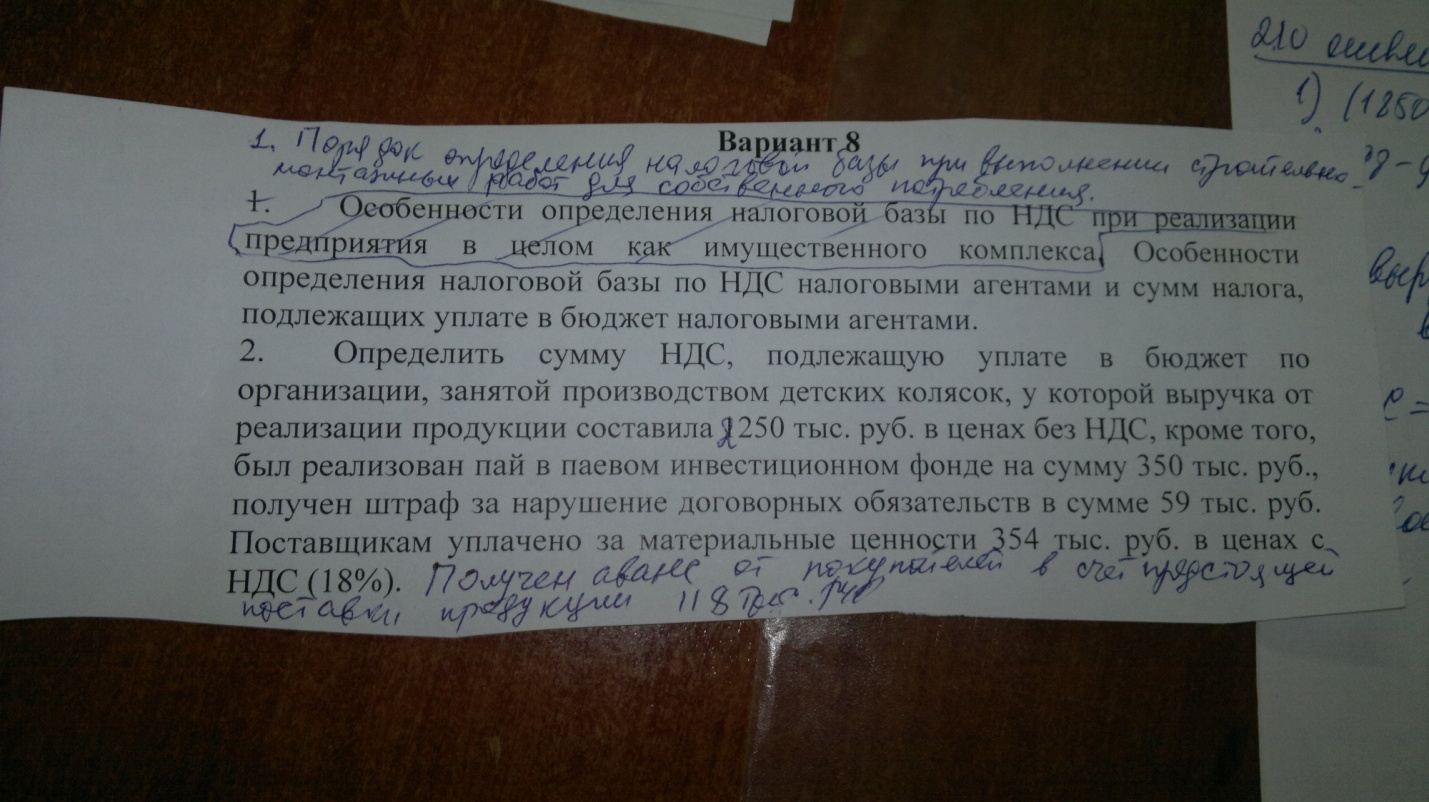 210
1) (1850
Вариант 8
1. Порядок определения налоговой базы при выполнении строительно-
монтажных работ для собственного потребления.
1. Особенности определения налоговой базы по НДС при реализации
предприятия в целом как имущественного комплекса. Особенности
определения налоговой базы по НДС налоговыми агентами и сумм налога,
подлежащих уплате в бюджет налоговыми агентами.
2. Определить сумму НДС, подлежащую уплате в бюджет по
организации, занятой производством детских колясок, у которой выручка от
реализации продукции составила 2250 тыс. руб. в ценах без НДС, кроме того,
был реализован пай в паевом инвестиционном фонде на сумму 350 тыс. руб.,
получен штраф за нарушение договорных обязательств в сумме 59 тыс. руб.
Поставщикам уплачено за материальные ценности 354 тыс. руб. в ценах с
НДС (18%). Получен аванс от покупателей в счет предстоящей
поставки продукции 118 тыс. руб